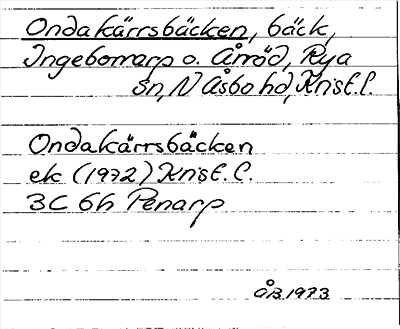 Ondakärrsbäcken, bäck,
Ingebomarp o. Årröd, Rya
sn, N Åsbo hd, Krist. l.
Ondakärrsbäcken
ek (1972) Krist. l.
3C 6h Penarp
ÅB 1973